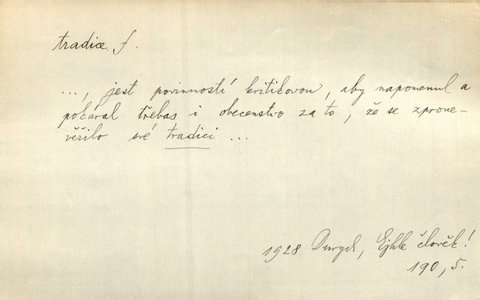 tradice f.
..., jest povinností kritikovou, aby napomenul a
pokáral třebas i obecenstvo za to, že se zprone-
věřilo své tradici ...
1928 Durych, Ejhle člověk!
190, 5.